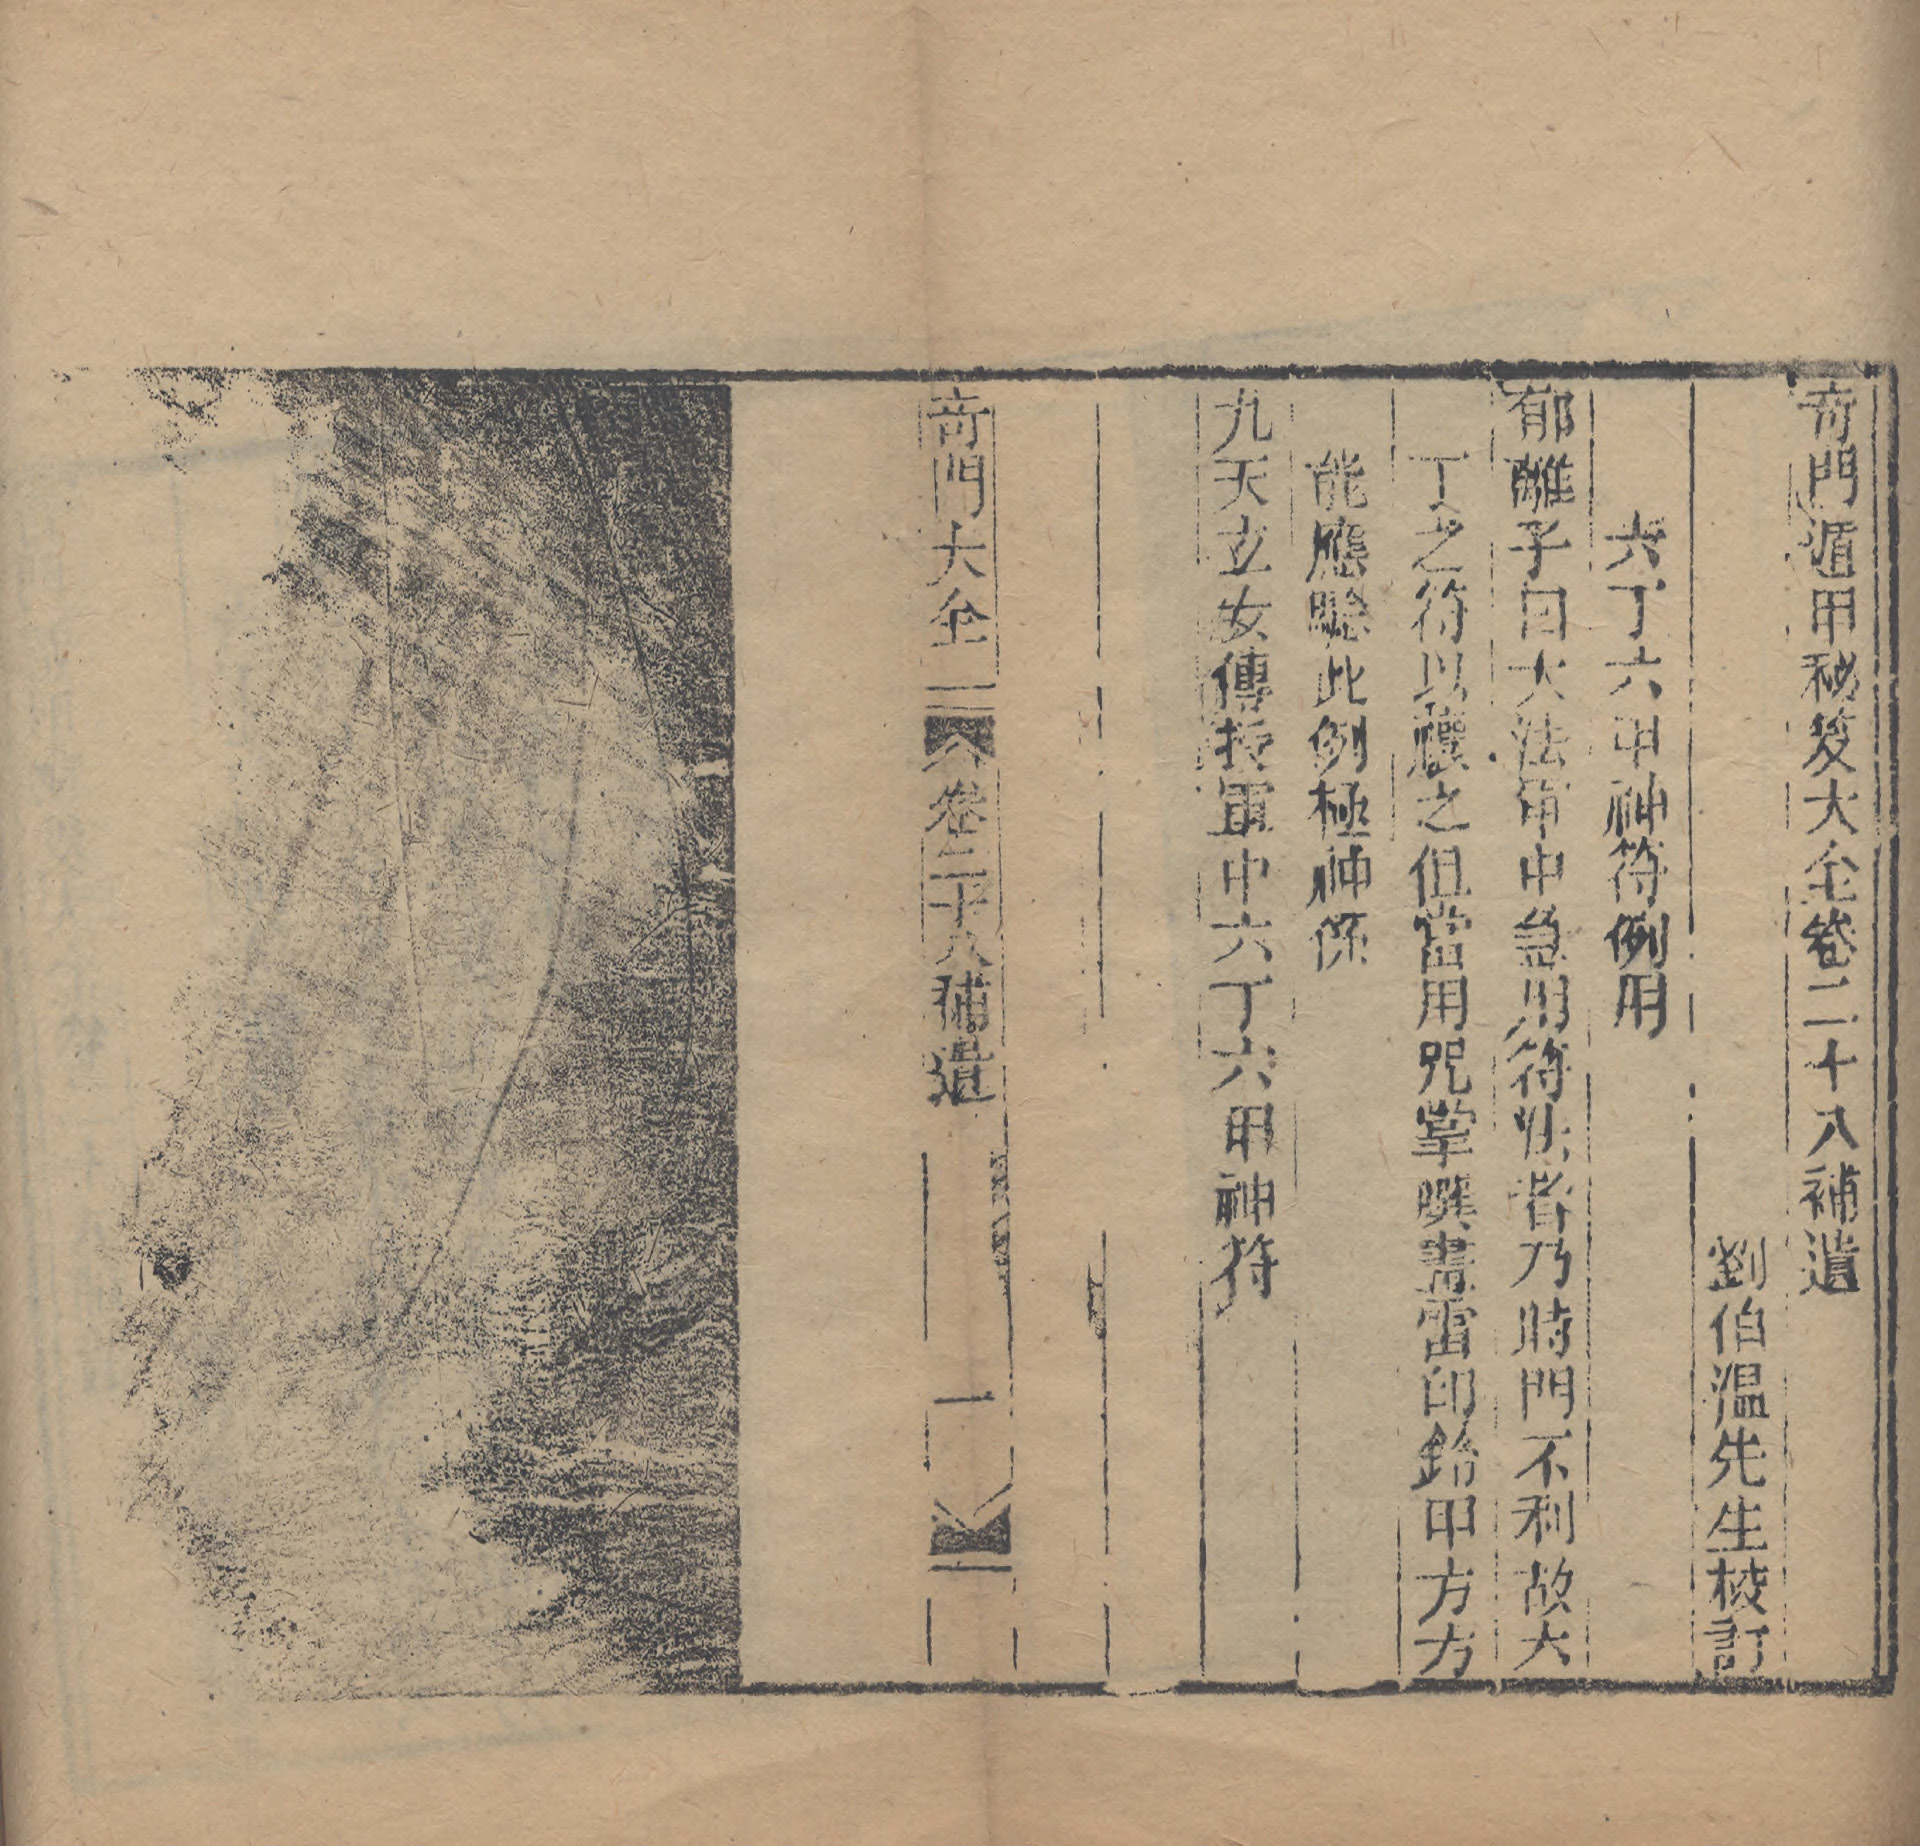 奇門遁甲秘笈大全卷二十八補遺
劉伯溫先生校訂
六丁六甲神符例用
郁離子曰大法軍中急用符法者乃時門不利故六
丁之符以禳之但當用咒掌噀畫雷印鈴甲方方
能應驗此例極神係
九天玄女傳授軍中六丁六甲神符
奇門大全 卷二十八補遺 一